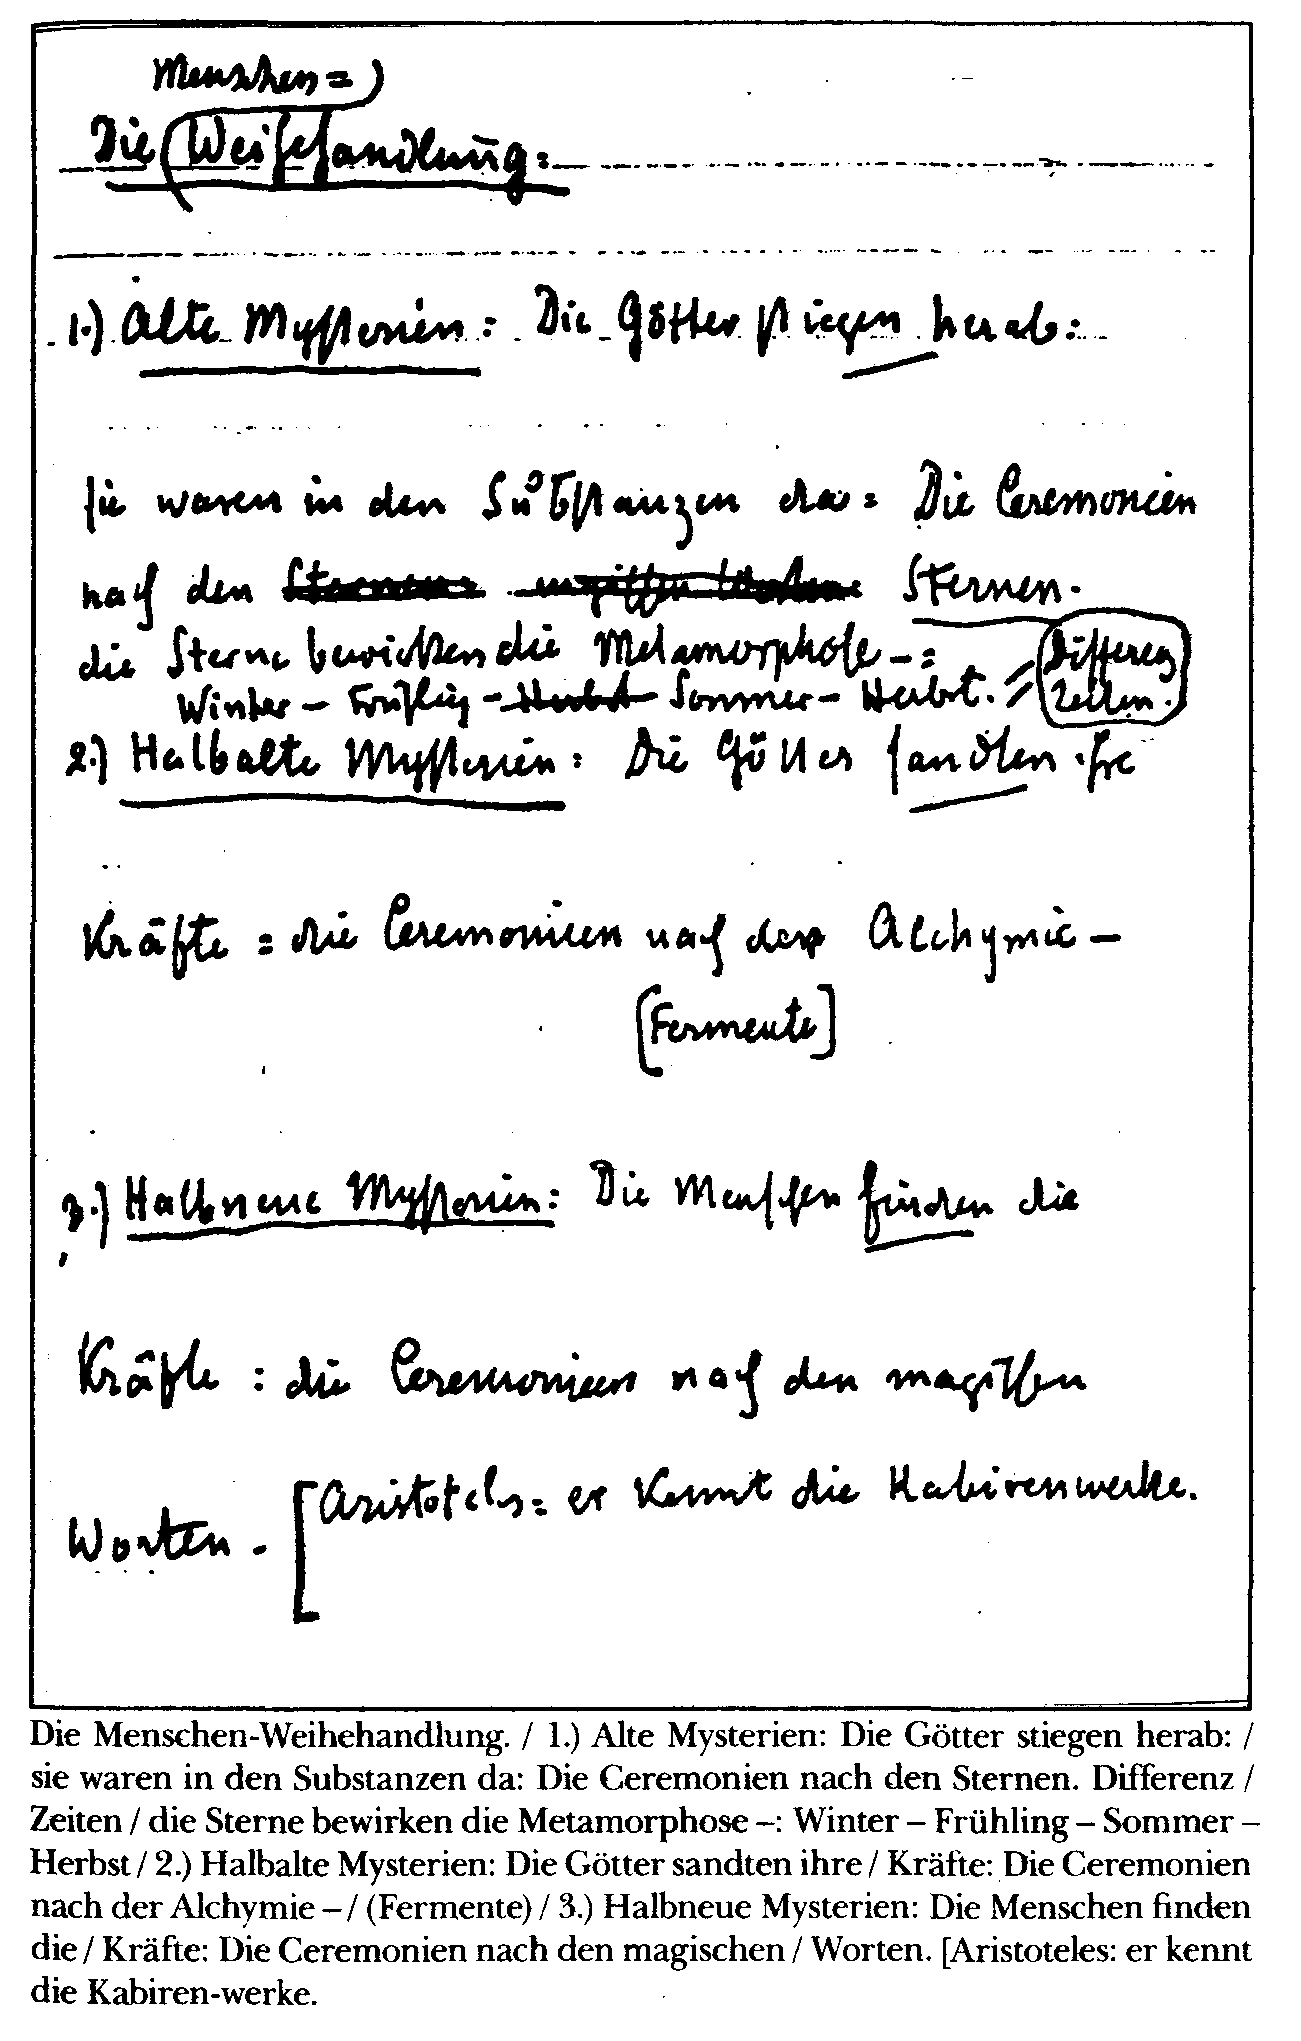 Menschen=)
Die (Weihehandlung:
1.) Alte Mysterien: Die Götter stiegen herab:
sie waren in den Substanzen da: Die Ceremonien
nach den Sternen.
die Sterne bewirken die Metamorphose -: Differenz
Winter - Frühling - Herbst Sommer - Herbst. Zeiten.
2.) Halbalte Mysterien: Die Götter sandten ihre
Kräfte: die Ceremonien nach der Alchymie -
[Fermente]
3.) Halbneue Mysterien: Die Menschen finden die
Kräfte: die Ceremonien nach den magischen
Worten. [Aristoteles: er kennt die Kabirenwerke.
Die Menschen-Weihehandlung. / 1.) Alte Mysterien: Die Götter stiegen herab: /
sie waren in den Substanzen da: Die Ceremonien nach den Sternen. Differenz /
Zeiten / die Sterne bewirken die Metamorphose –: Winter – Frühling – Sommer –
Herbst / 2.) Halbalte Mysterien: Die Götter sandten ihre / Kräfte: Die Ceremonien
nach der Alchymie – / (Fermente) / 3.) Halbneue Mysterien: Die Menschen finden
die / Kräfte: Die Ceremonien nach den magischen / Worten. [Aristoteles: er kennt
die Kabiren-werke.